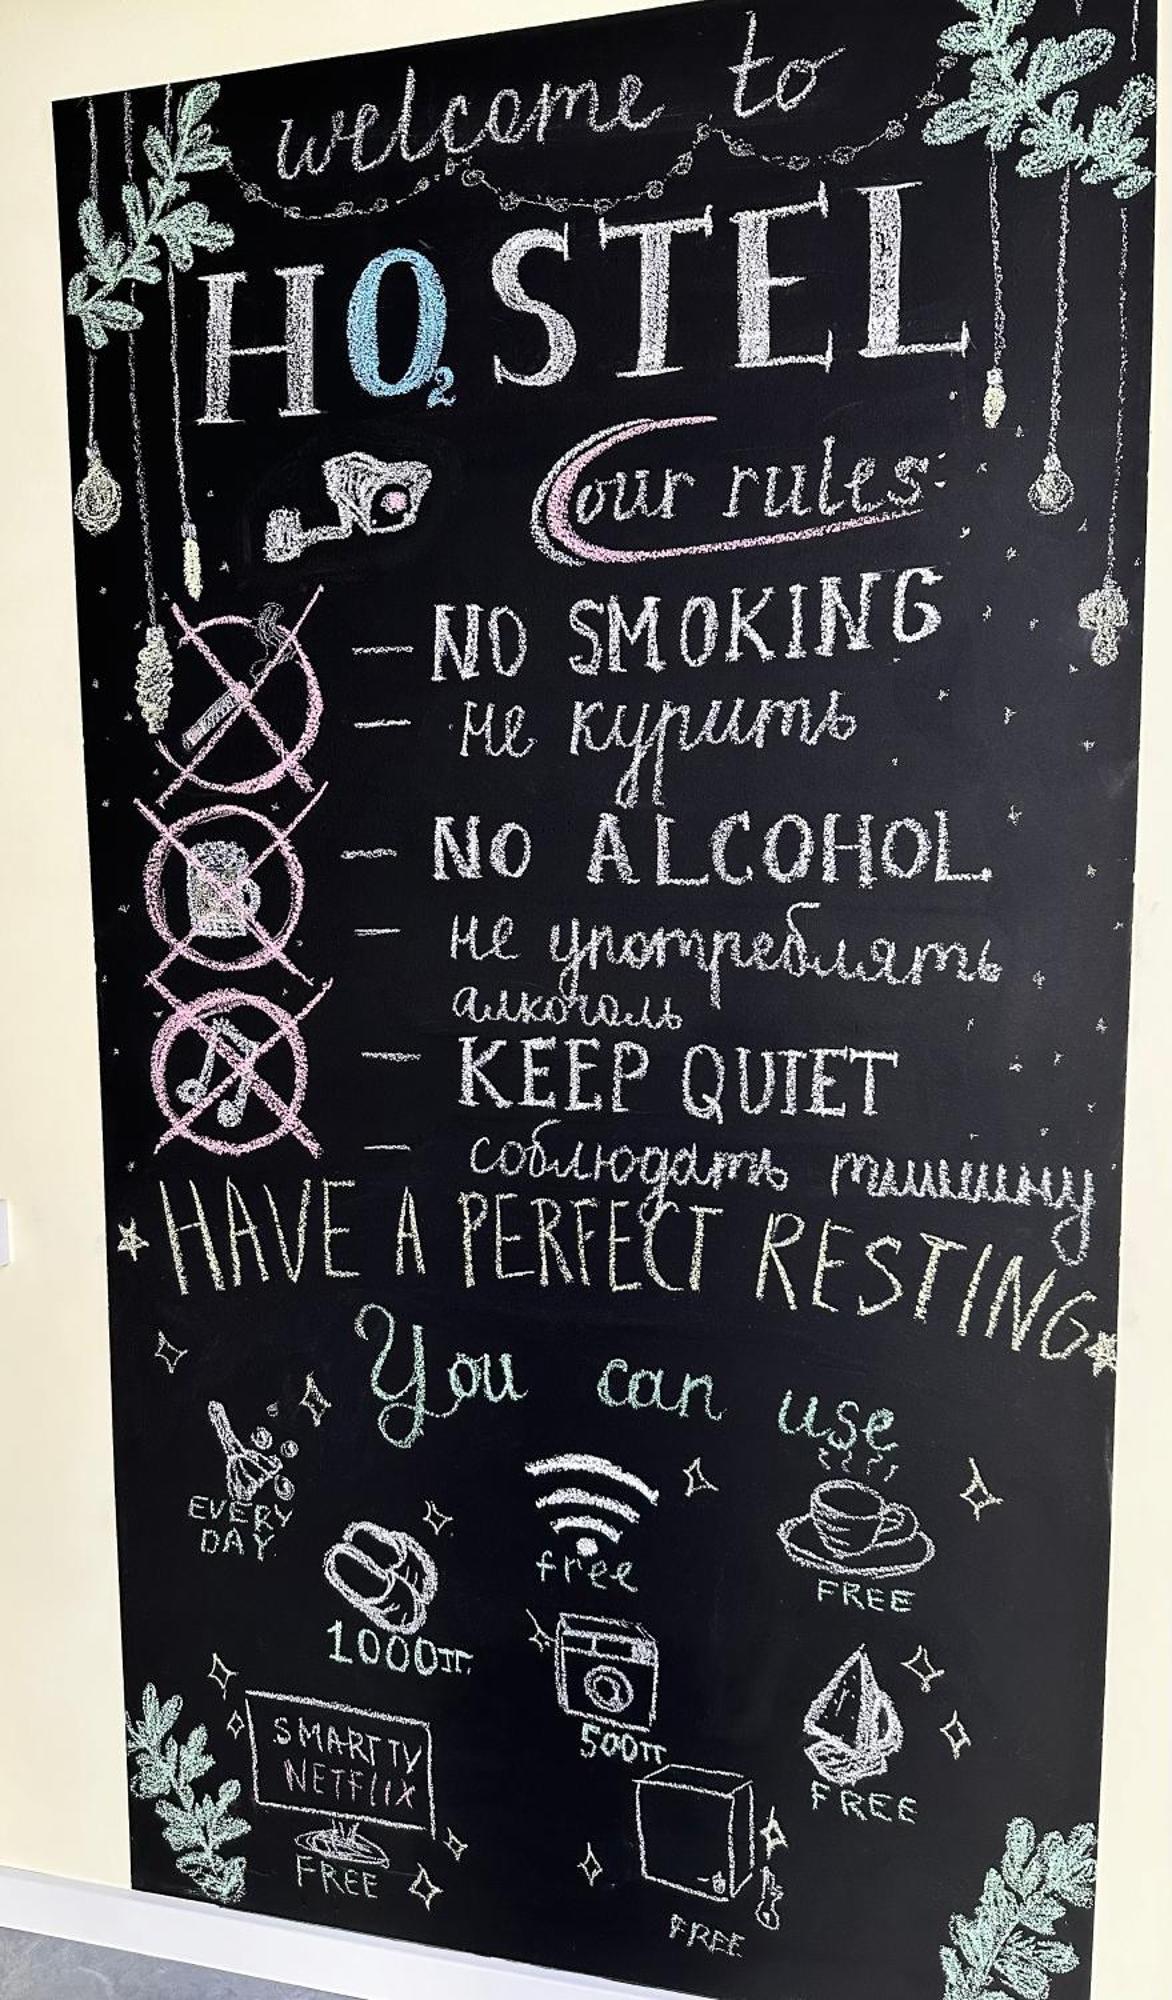 welcome to
HO₂STEL
our rules:
— NO SMOKING
— не курить
— NO ALCOHOL
— не употреблять
алкоголь
— KEEP QUIET
— соблюдать тишину
HAVE A PERFECT RESTING
You can use
EVERY
DAY
free
FREE
1000тг.
500тг
SMART TV
NETFLIX
FREE
FREE
FREE